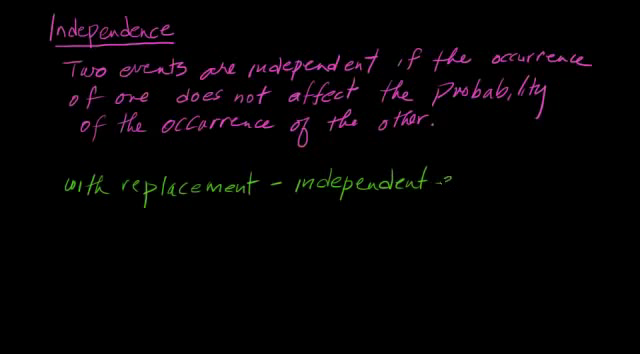 Independence
Two events are independent if the occurrence
of one does not affect the Probability
of the occurrence of the other.
with replacement - independent -